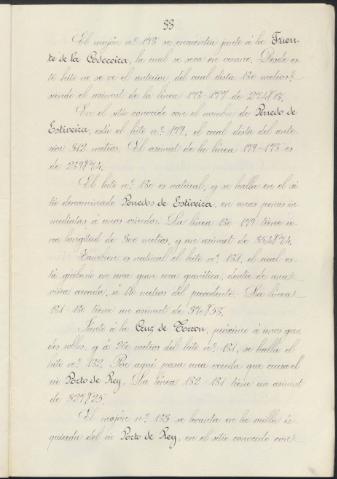 33
El mojón nº 178 se encuentra junto á la Fuen-
te de la Codeceira, la cual se seca en verano. Desde es-
te hito no se ve el anterior, del cual dista 130 metros
siendo el azimut de la línea
En el sitio conocido con el nombre de Penedo de
Estiveira, está el hito nº 179, el cual dista del ante-
rior 312 metros. El azimut de la línea 179-178 es
de
El hito nº 180 es natural, y se halla en el si-
tio denominado Penedos de Estiveira, en unas peñas in-
mediatas á unas viñas. La línea 180 179 tiene u-
na longitud de 300 metros, y un azimut de
También es natural el hito nº 181, el cual es-
tá grabado en una gran roca granítica, dentro de una
viña cerrada, á metros del precedente. La línea
181 180 tiene un azimut de
Junto á la Cruz de, próximo á unos gran-
des robles, y á metros del hito nº 181, se halla el
hito nº 182. Por aquí pasa una vereda que cruza el
río Porto de Rey. La línea 182 181 tiene un azimut
de
El mojón nº 183 se levanta en la orilla iz-
quierda del río Porto de Rey, en el sitio conocido con